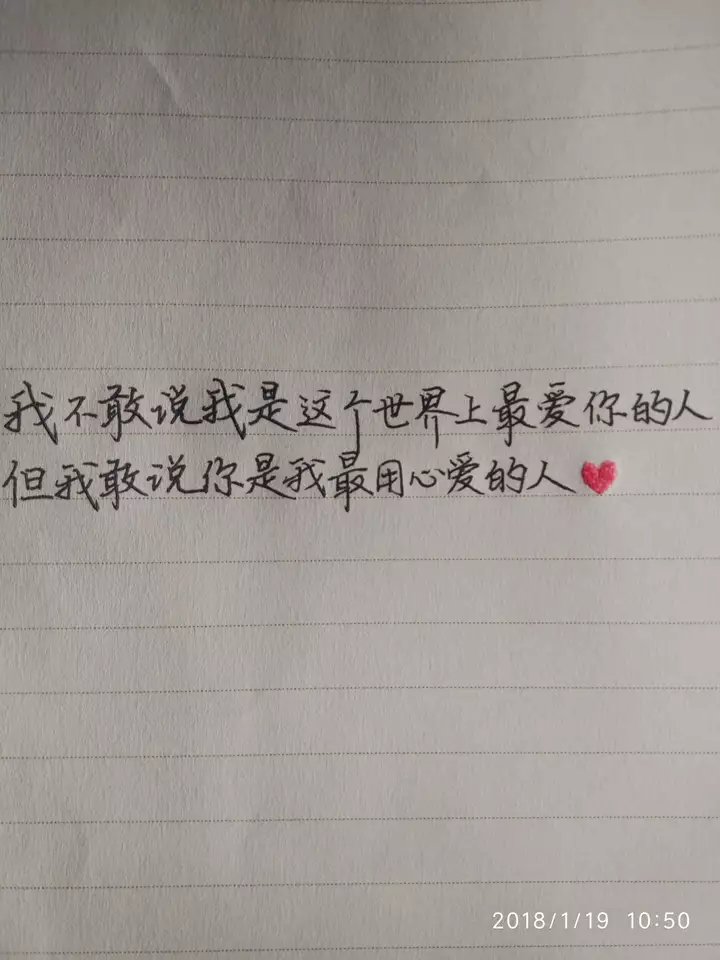 我不敢说我是这个世界上最爱你的人
但我敢说你是我最用心爱的人
2018/1/19 10:50